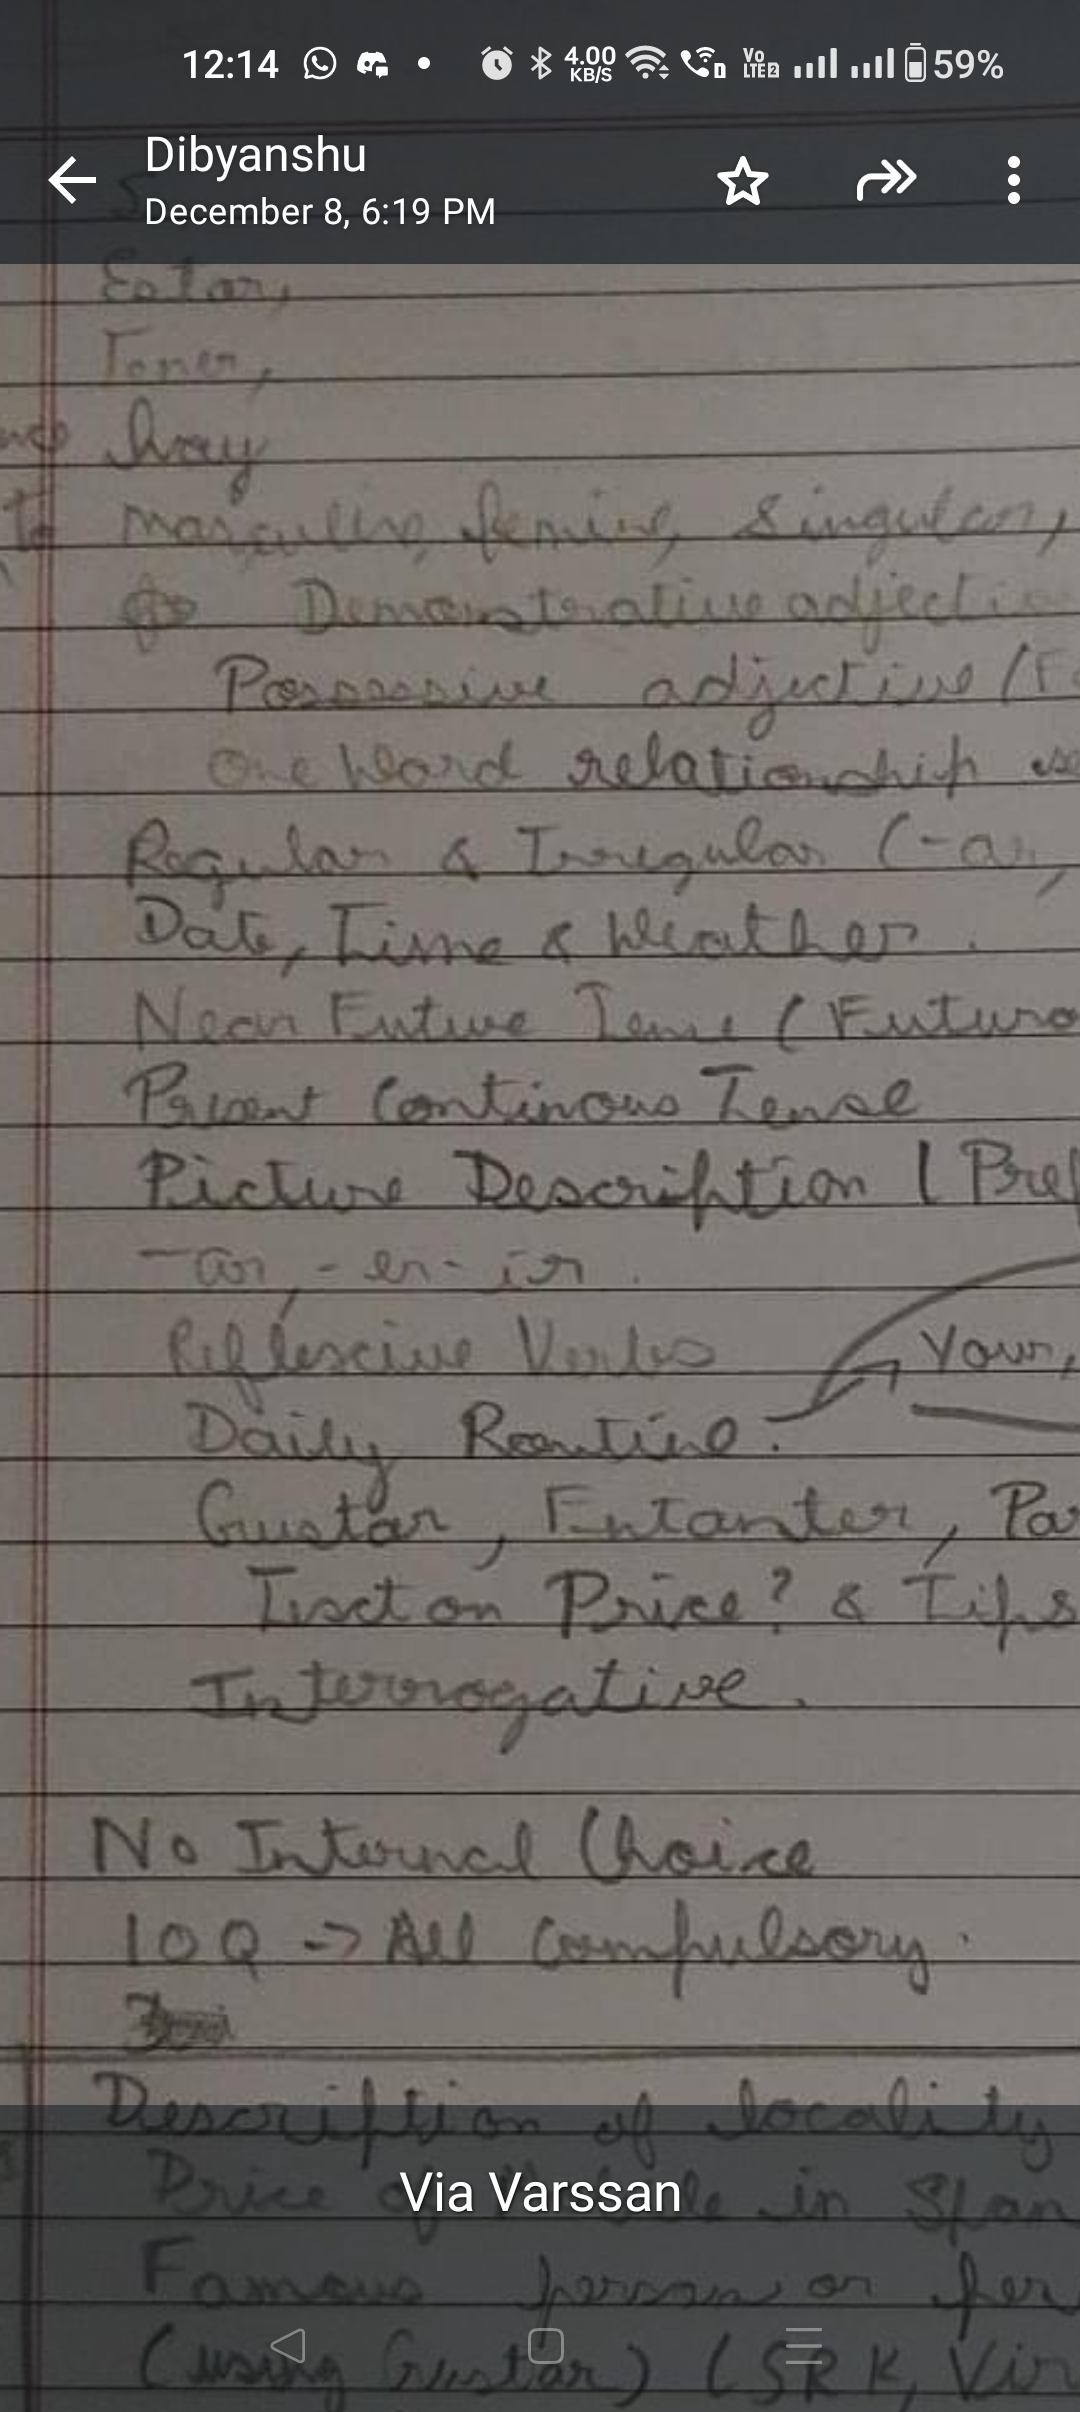 12:14 4.00 KB/S Vo LTE2 59%
Dibyanshu
December 8, 6:19 PM
Estar,
Tener,
hay
masculine, femine, singular,
Demonstrative adjecti
Possessive adjective (F
one word relationship
Regular & Irregular (-a
Date, Time & Weather.
Near Future Tense (Futuro
Present Continous Tense
Picture Description (Pre
-ar, -er -ir.
Reflexive Verbs
Your,
Daily Routine.
Gustar, Entanter, Pa
Text on Price? & Tips
Interrogative.
No Internal Choice
10Q -> All Compulsory.
Description of locality
Price of in Span
Via Varssan
Famous person or per
(using Gustar) (SRK, Vir